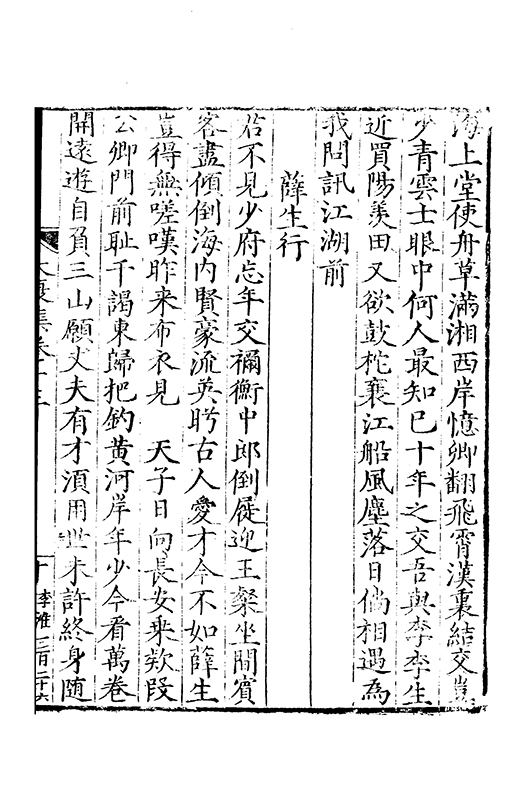 海上堂使舟草滿湘西岸憶卿翻飛霄漢裏結交豈
少青雲士眼中何人最知己十年之交吾與李李生
近買陽羨田又欲鼓柁襄江船風塵落日倘相遇為
我問訊江湖前
薛生行
君不見少府忘年交禰衡中郎倒屣迎王粲坐間賓
客盡傾倒海内賢豪流英眄古人愛才今不如薛生
豈得無嗟嘆昨来布衣見 天子日向長安乘欵段
公卿門前耻干謁東歸把釣黄河岸年少今看萬卷
開遠遊自負三山願丈夫有才須用世未許終身随
太函集卷十三
十 李淮 三百二十六